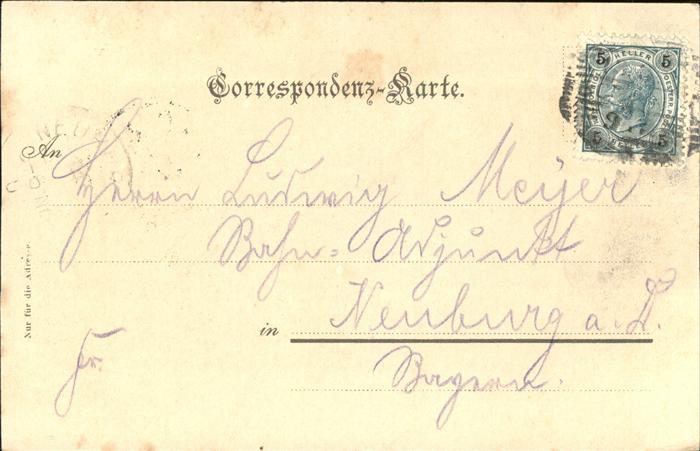 Correspondenz-Karte.
5 HELLER 5
5 5
NEU
An
Herrn Ludwig Meyer
Bahn-Adjunkt
in Neuburg a. D.
Fr.
Bayern.
Nur für die Adresse.